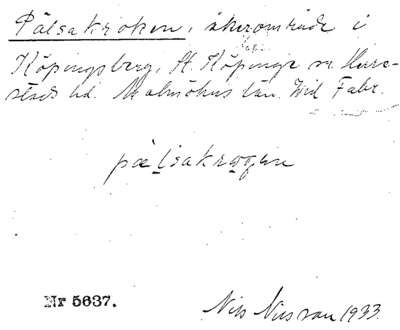 Pälsakroken, åkerområde i
Köpingsberg, St. Köpinge sn Herre-
stads hd. Malmöhus län. Vid Fabr.
pælsakrogen
Nr 5637.
Nils Nilsson 1933.